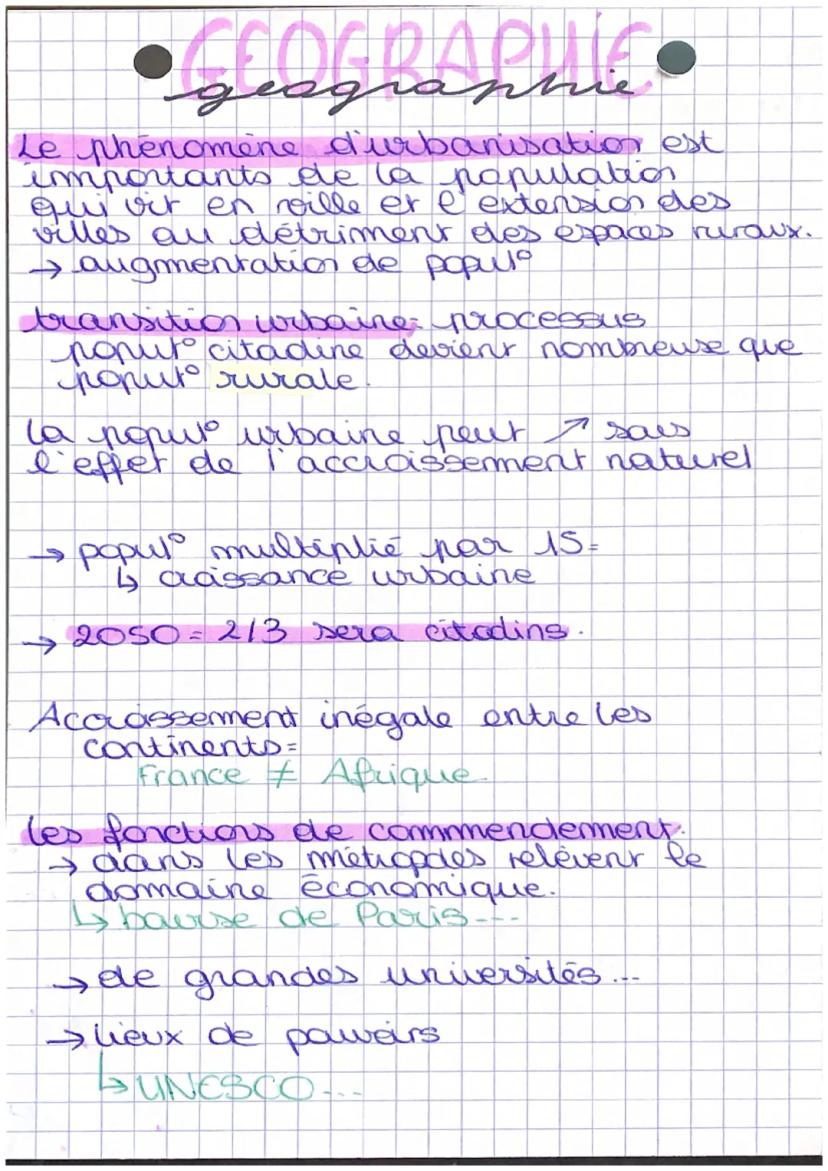 GEOGRAPHIE
geographie
Le phénomène d'urbanisation est
importants de la population
qui vit en ville et l'extension des
villes au détriment des espaces ruraux.
→ augmentation de popul°
transition urbaine: processus
popul° citadine devient nombreuse que
popul° rurale.
la popul° urbaine peut ↗ sous
l'effet de l'accroissement naturel
→ popul° multiplié par 15=
↳ croissance urbaine
→ 2050= 2/3 sera citadins.
Accroissement inégale entre les
continents=
France ≠ Afrique
les fonctions de commendement.
→ dans les métropoles relèvent le
domaine économique.
↳ bourse de Paris...
→ de grandes universités...
→ lieux de pouvoirs
↳ UNESCO...